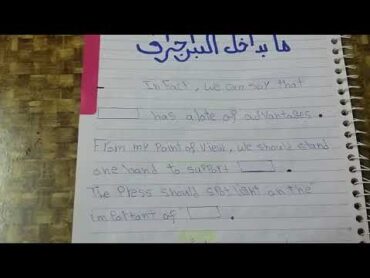 ما بداخل البراجراف
In fact, we can say that
has a lote of advantages.
From my Point of view, we should stand
one hand to support
The Press should spot light on the
important of